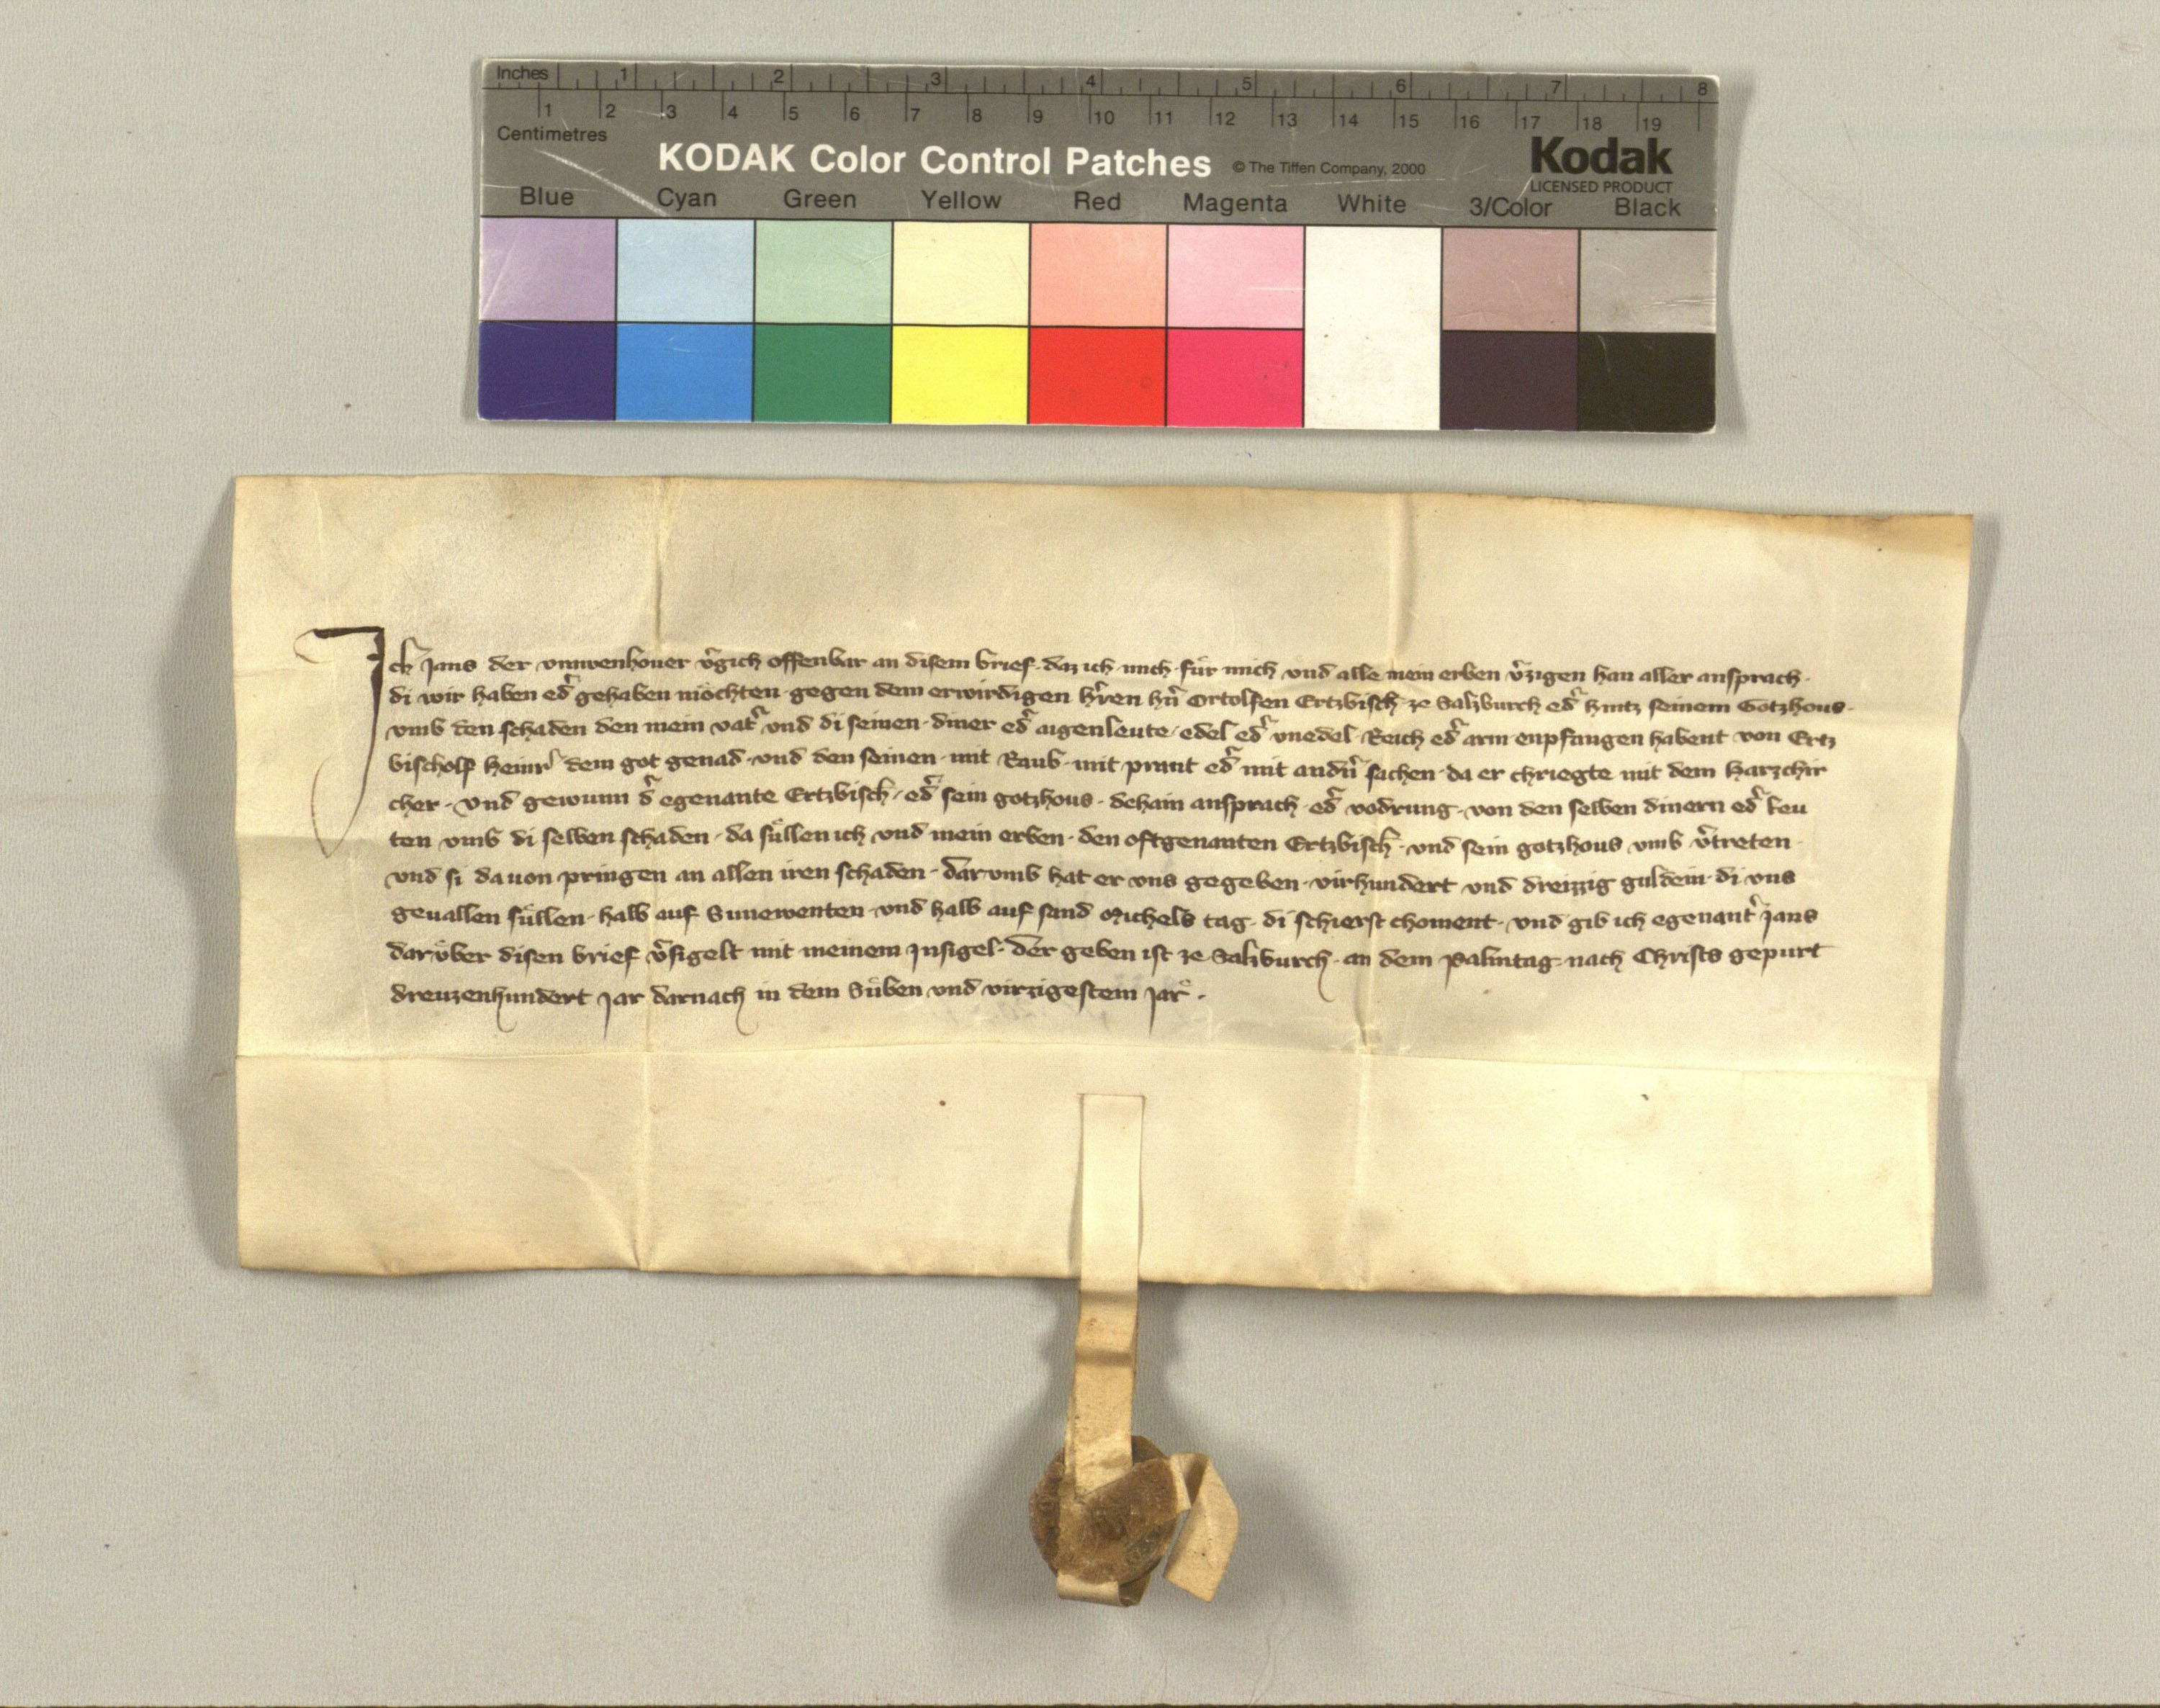 Inches 1 2 3 4 5 6 7 8
1 2 3 4 5 6 7 8 9 10 11 12 13 14 15 16 17 18 19
Centimetres
KODAK Color Control Patches © The Tiffen Company, 2000 Kodak
LICENSED PRODUCT
Blue Cyan Green Yellow Red Magenta White 3/Color Black
Ich Jans der v̾gich offenbar an disem brief · daz ich mich · für mich vnd alle mein erben v̾zigen han aller ansprach ·
di wir haben ed̾ gehaben möchten · gegen dem erwirdigen h̾ren hn̾ Ortolfen Ertzbisch̾ ze Salzburch ed̾ hintz seinem Gotzhous ·
vmb den schaden den mein vat̾ vnd di seinen · diner ed̾ aigenleute · edel ed̾ vnedel · Reich ed̾ arm enpfangen habent von Ertz
bischolf Heinr̾ dem got genad · vnd den seinen · mit Raub · mit prant ed̾ mit andn̾ sachen · da er chriegte mit dem Harzchir
cher · vnd gewunn d̾ egenante Ertzbisch̾ · ed̾ sein gotzhous · dehain ansprach · ed̾ vodrung · von den selben dinern ed̾ leu
ten vmb di selben schaden · da süllen ich vnd mein erben · den oftgenanten Ertzbisch̾ · vnd sein gotzhous vmb v̾treten
vnd si dauon pringen an allen iren schaden · darvmb hat er vns gegeben · virhundert vnd dreizzig guldein · di vns
geuallen süllen · halb auf Sunewenten · vnd halb auf sand Michels tag · di schierst choment · vnd gib ich egenant̾ Jans
darüber disen brief v̾sigelt mit meinem Insigel · der geben ist ze Salzburch · an dem Palmtag · nach Christs gepurt
dreuzenhundert jar darnach in dem Süben vnd virzigestem jar ·